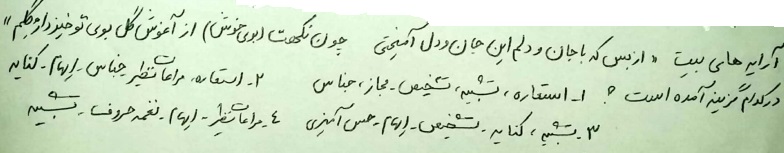 آرایه های بیتِ « از بس که با جان و دلم این جان و دل آمیختی چون نکهت (بوی خوش) از آغوش گل بوی تو خیزد از گِلم »
در کدام گزینه آمده است ؟ ۱- استعاره ، تشبیه ، تشخیص - مجاز ، جناس ۲- استعاره، مراعات نظیر جناس - ایهام - کنایه
۳- تشبیه ، کنایه - تشخیص - ایهام - حس آمیزی ۴- مراعات نظیر - ایهام - نغمه حروف - تشبیه